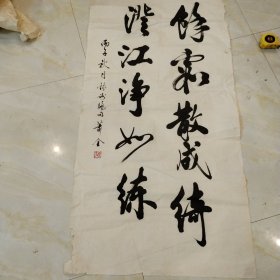 餘霞散成綺
澄江淨如練
丙子秋月